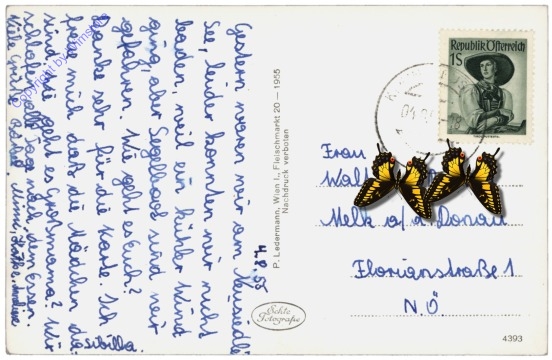 4.8.55
Gestern waren wir am Neusiedler
See, leider konnten wir nicht
baden, weil ein kühler Wind
ging, aber Segelboot sind wir
gefahren. Wie geht es Euch?
habe sehr für die Karte. Ich
freue mich daß die Mädchen da
sind. Wie geht es Großmama? Wir
schlafen alle Tag nach dem Essen.
Viele Grüße
Sibilla.
P. Ledermann, Wien I., Fleischmarkt 20 — 1955
Nachdruck verboten
Echte
Fotografie
Republik Österreich
1S
Frau
Melk a/d Donau
Florianstraße 1
N.Ö
4393